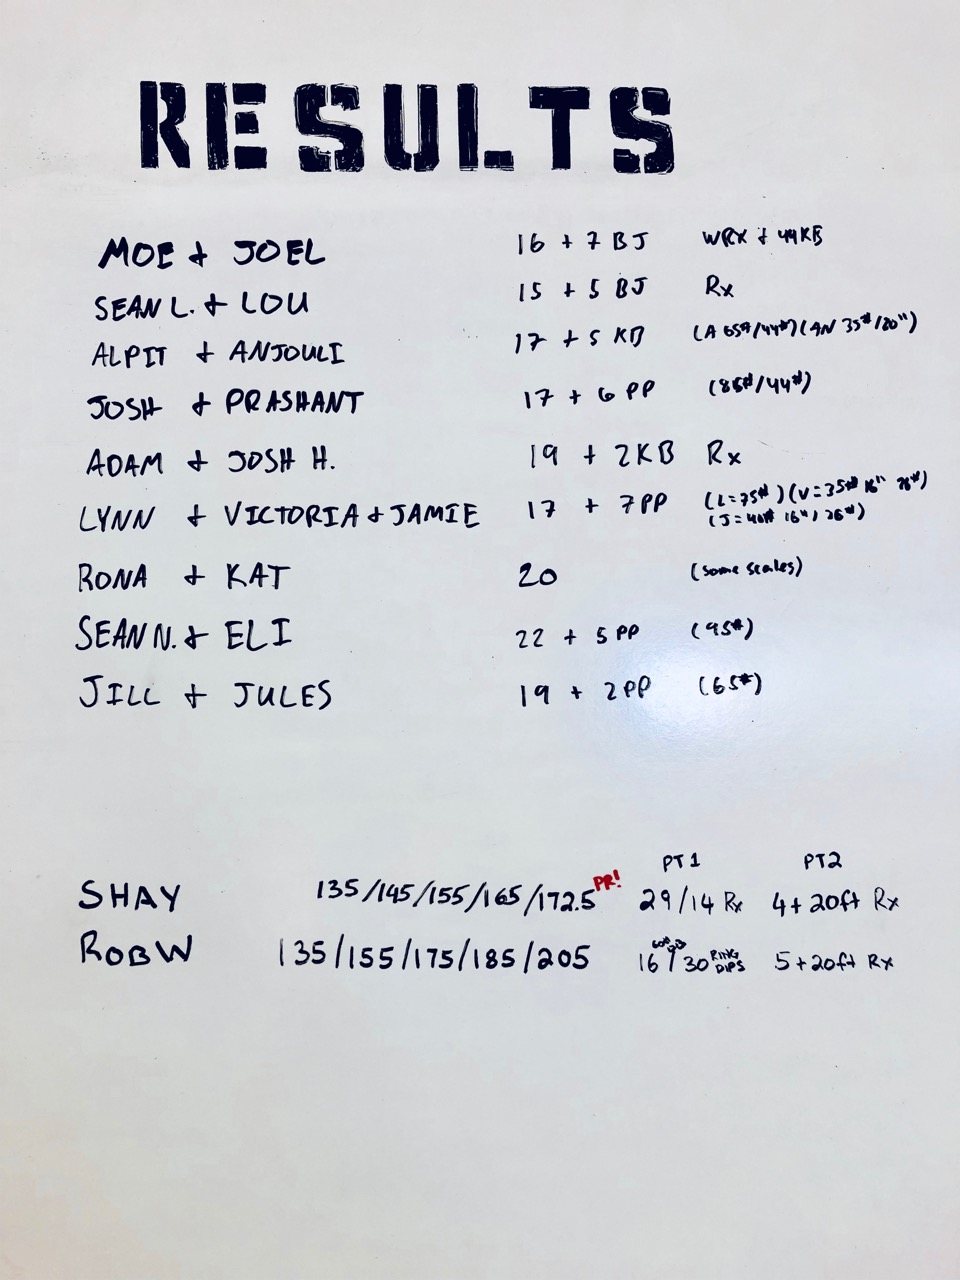 RESULTS
MOE & JOEL 16 + 7 BJ WRX + 44KB
SEAN L. & LOU 15 + 5 BJ Rx
ALPIT & ANJOULI 17 + 5 KB (A 65#/44#)(AN 35#/20")
JOSH & PRASHANT 17 + 6 PP (85#/44#)
ADAM & JOSH H. 19 + 2KB Rx
LYNN & VICTORIA & JAMIE 17 + 7PP (L=75#)(V=35# 16" 26#)
(J=40# 16"/26#)
RONA & KAT 20 (some scales)
SEAN N. & ELI 22 + 5 PP (95#)
JILL & JULES 19 + 2PP (65#)
PT1 PT2
SHAY 135/145/155/165/172.5 PR! 29/14 Rx 4+20ft Rx
ROB W 135/155/175/185/205 16/30 RING DIPS 5+20ft Rx